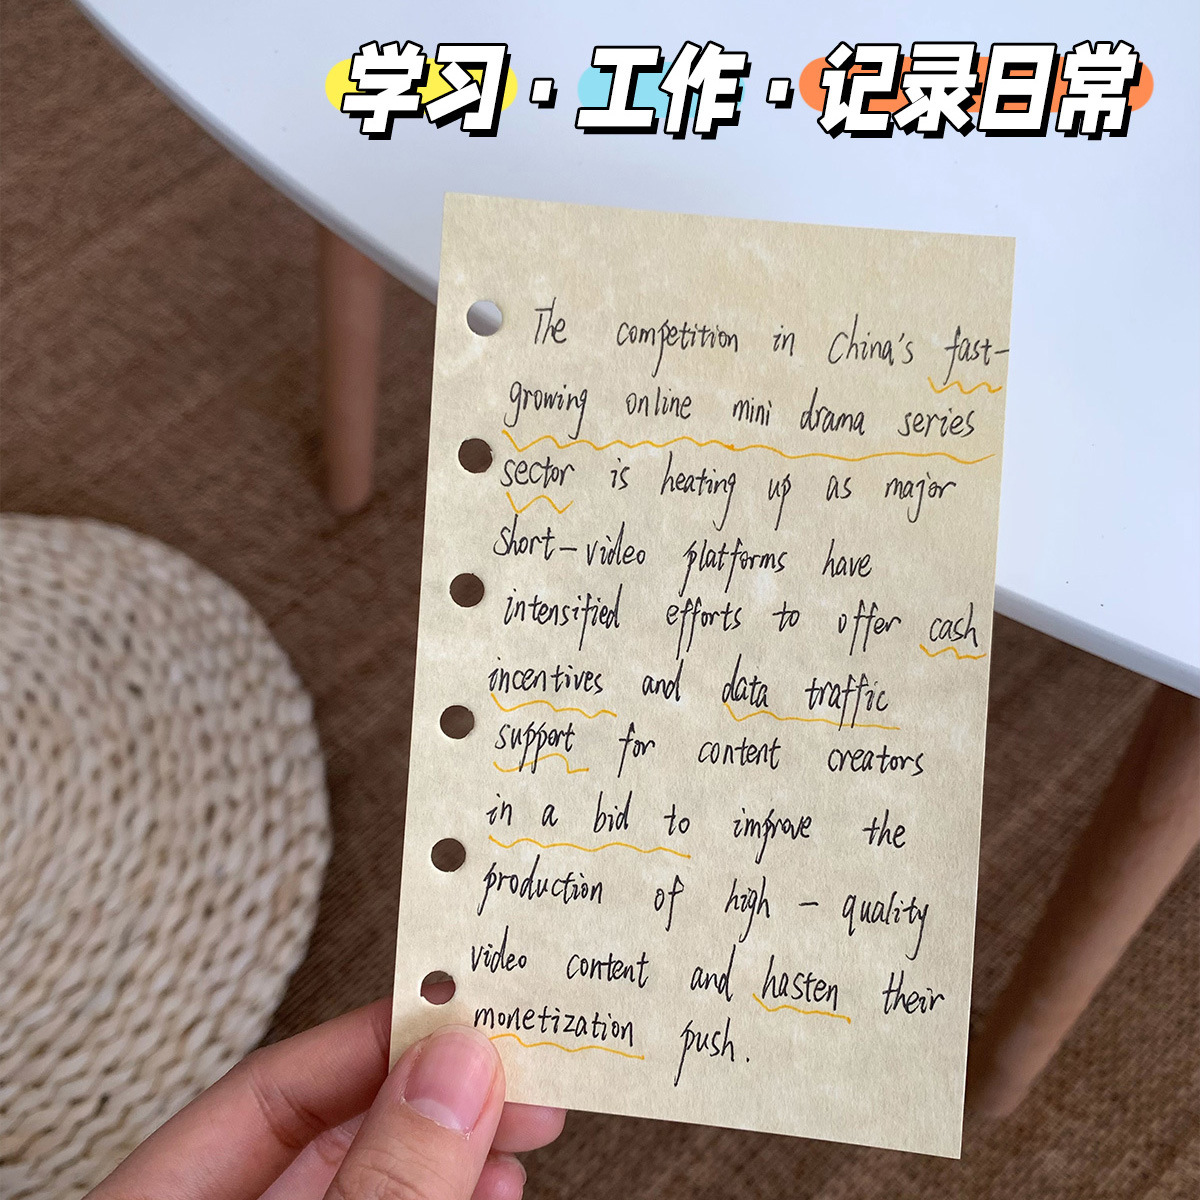 学习·工作·记录日常
The competition in China's fast-
growing online mini drama series
sector is heating up as major
short-video platforms have
intensified efforts to offer cash
incentives and data traffic
support for content creators
in a bid to improve the
production of high-quality
video content and hasten their
monetization push.